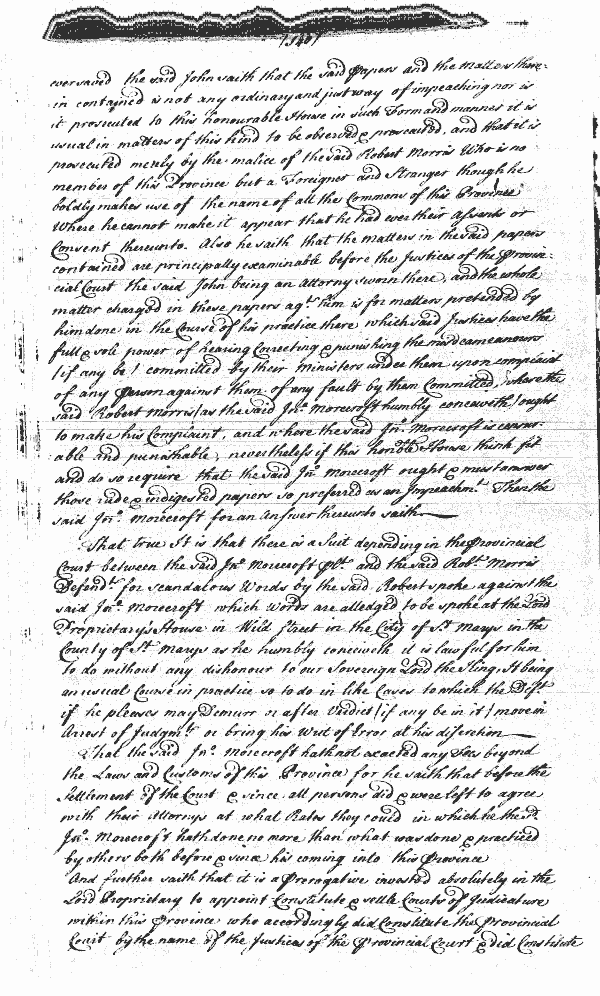 (340)
ever saved the said John saith that the said Papers and the Matters there-
in contained is not any ordinary and just way of impeaching nor is
it prosecuted to this honourable House in such Form and manner it is
usual in matters of this kind to be observed & prosecuted, and that it is
prosecuted merely by the malice of the said Robert Morris Who is no
member of this Province but a Foreigner and Stranger though he
boldly makes use of the name of all the Commons of this Province
Where he cannot make it appear that he had ever their Assents or
Consent thereunto. Also he saith that the matters in the said papers
contained are principally examinable before the Justices of the Provin-
cial Court the said John being an Attorny sworn there, and the whole
matter charged in these papers agt. him is for matters pretended by
him done in the Course of his practice there which said Justices have the
full & sole power of hearing Correcting & punishing the misdemeanours
(if any be) committed by their Ministers under them upon complaint
of any person against them of any fault by them Committed, where the
said Robert Morris (as the said Jno. Morecroft humbly conceiveth) ought
to make his Complaint, and where the said Jno. Morecroft is censur-
able and punishable, nevertheless if this honoble. House think fit
and do so require that the said Jno. Morecroft ought & must answer
those rude & indigested papers so preferred as an Impeachmt. Then the
said Jno. Morecroft for an Answer thereunto saith
That true It is that there is a Suit depending in the Provincial
Court between the said Jno. Morecroft Plt. and the said Robt. Morris
Defendt. for scandalous Words by the said Robert spoke against the
said Jno. Morecroft which words are alledged to be spoke at the Lord
Proprietary's House in Wild Street in the City of St. Marys in the
County of St. Marys as he humbly conceiveth it is lawful for him
to do without any dishonour to our Sovereign Lord the King, It being
an usual Course in practice so to do in like Cases to which the Deft.
if he pleases may Demurr or after Verdict (if any be in it) move in
Arrest of Judgmt. or bring his Writ of Error at his discretion
That the said Jno. Morecroft hath not exacted any Fees beyond
the Laws and Customs of this Province for he saith that before the
Settlement of the Court & since all persons did & were left to agree
with their Attornys at what Rates they could in which he the sd.
Jno. Morecroft hath done no more than what was done & practiced
by others both before & since his coming into this Province
And further saith that it is a Prerogative invested absolutely in the
Lord Proprietary to appoint Constitute & settle Courts of Judicature
within this Province who accordingly did Constitute the Provincial
Court by the name of the Justices of the Provincial Court & did Constitute